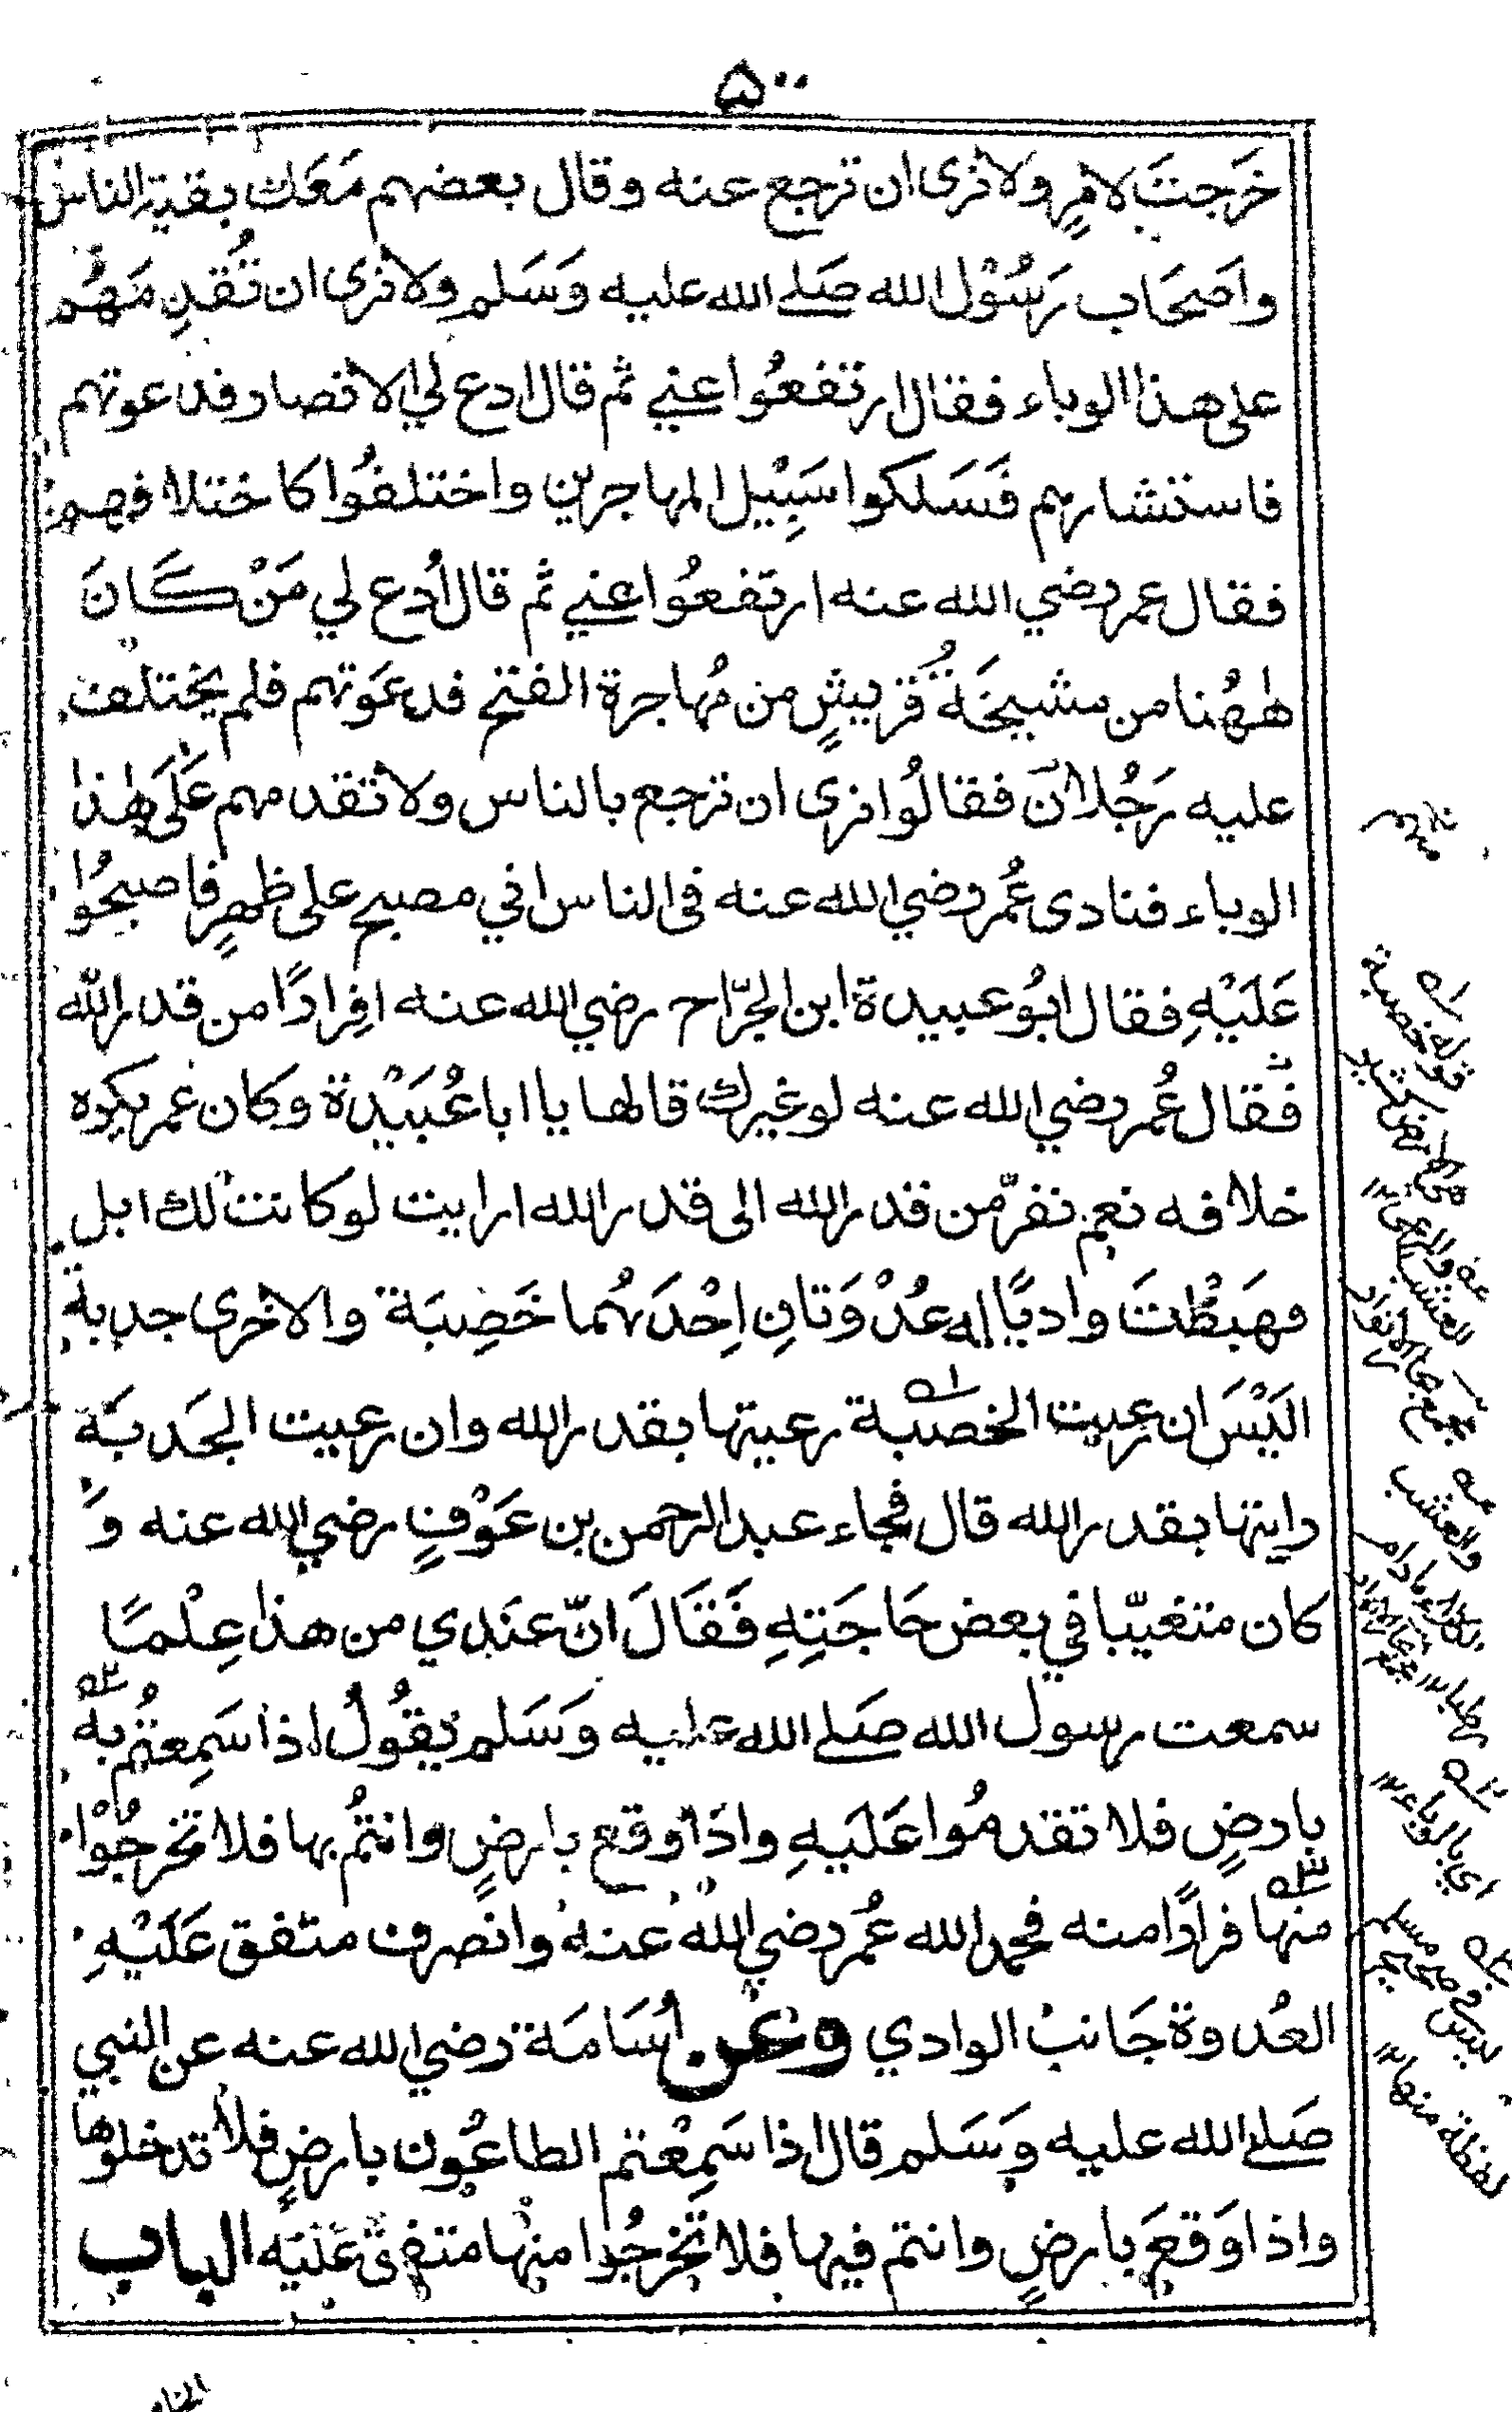 ٥٠٠
خَرَجتَ لامرٍ ولا نرى ان ترجع عنه وقال بعضهم مَعَك بقية الناس
واَصحَاب رَسُوْل الله صَلے الله عليه وَسَلم ولا نرى ان تُقدِمَهُم
على هذا الوباء فقال ارتفعُوا عني ثم قال ادع لي الانصار فدعوتهم
فاستشارهم فَسَلكوا سَبِيْل المهاجرين واختلفُوا كاختلافهم
فقال عمر رضي الله عنه ارتفعُوا عني ثم قال اُدع لي مَنْ كَانَ
هٰهُنا من مشيخَة قُريشٍ من مُهاجرة الفتح فدعَوتهم فلم يختلف
عليه رَجُلانِ فقالُوا نرى ان ترجع بالناس ولا تقدمهم عَلَى هٰذا
الوباء فنادى عُمر رضي الله عنه فى الناس اني مصبح على ظهرٍ فاصبحُوا
عَلَيْهِ فقال ابُو عبيدة ابن الجرّاح رضي الله عنه افِرارًا من قدر الله
فقال عُمر رضي الله عنه لو غيرك قالها يا ابا عُبَيْدة وكان عمر يكره
خلافه نعم نفرّ من قدر الله الى قدر الله ارايت لو كانت لك ابل
فهَبَطْتَ واديًا له عُدْوَتانِ اِحْدَىهُما خَصِبَة والاخرى جدبة
اليْسَ ان رعيت الخصبة رعيتها بقدر الله وان رعيت الجَدبَة
رايتها بقدر الله قال فجاء عبد الرحمن بن عَوْفٍ رضي الله عنه وَ
كان متغيّبا في بعض حَاجَتِهِ فَقَالَ انّ عنَدِي من هذا عِلْمًا
سمعت رسول الله صَلے الله عليه وَسَلم يقُولُ اذا سَمِعتُم به
بارضٍ فلا تقدمُوا عَلَيهِ واذَا وقع بارضٍ وانتُم بها فلا تخرجُوْا
منها فرارًا منه فحمد الله عُمر رضي الله عنه وانصرف متفق عَلَيْهِ
العُدوة جَانبُ الوادي وعن اُسَامَة رضي الله عنه عن النبي
صَلے الله عليه وَسَلم قال اذا سَمِعْتم الطاعُون بارضٍ فلا تدخلوها
واذا وَقعَ بارضٍ وانتم فيها فلا تخرجُوا منها متفق عَليَه الباب